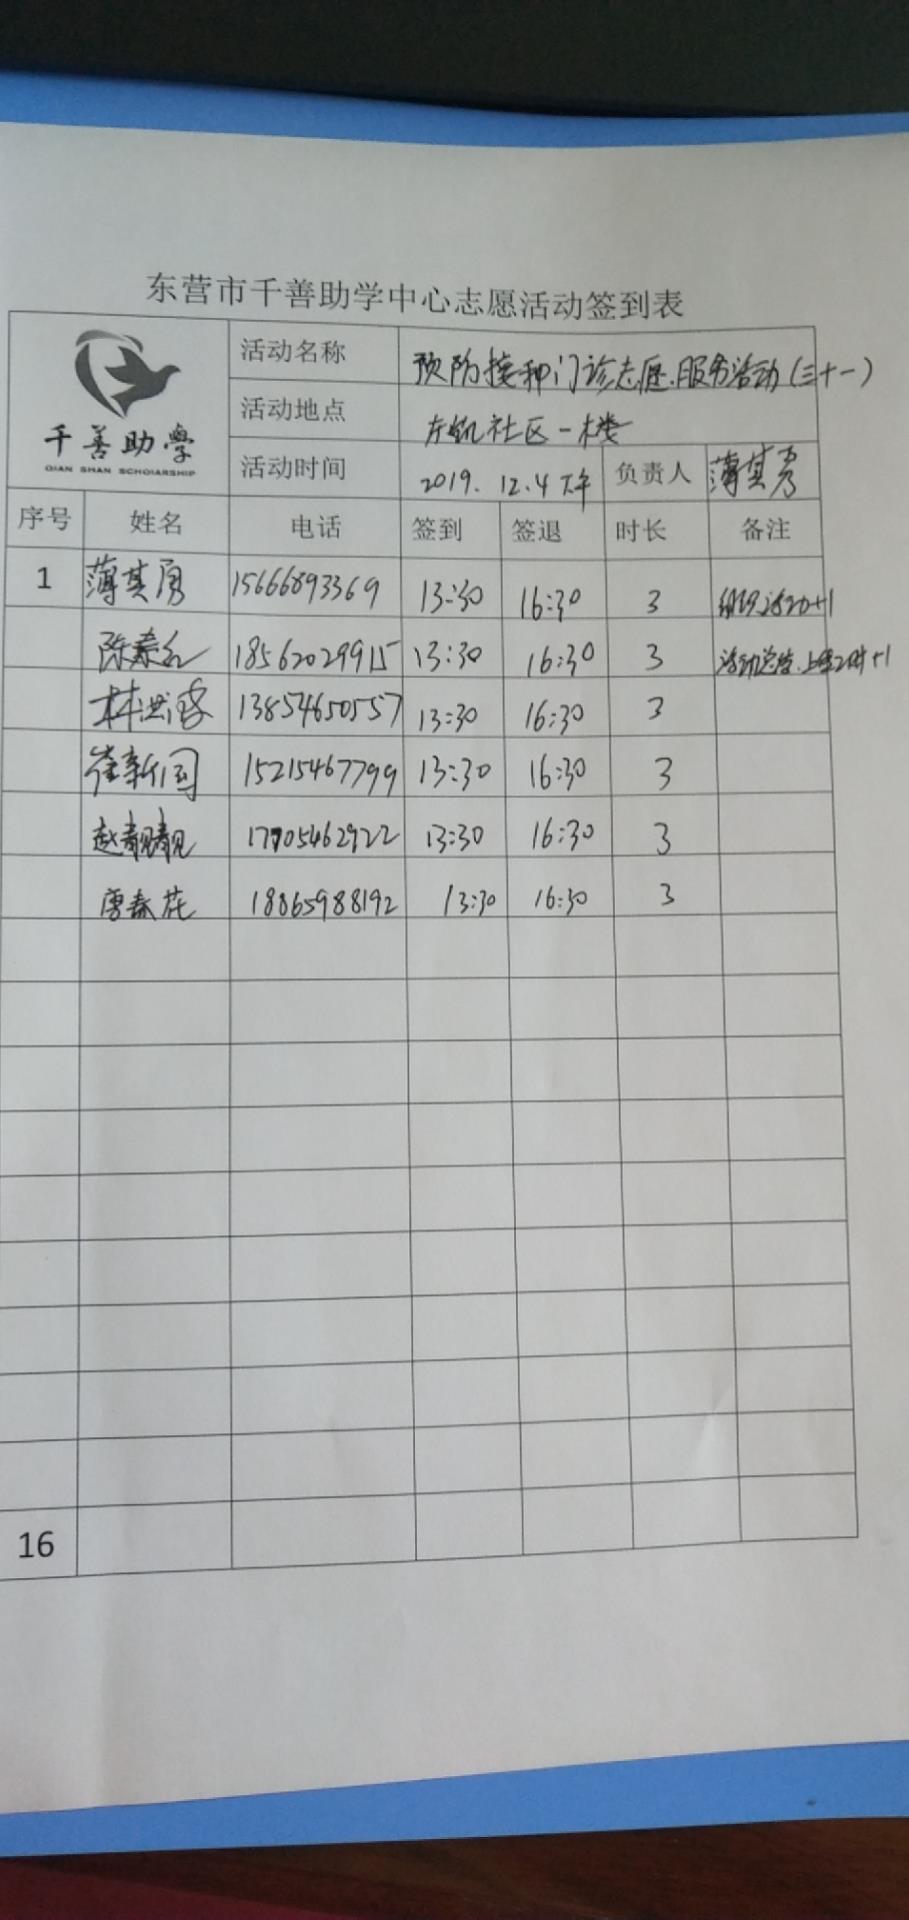 东营市千善助学中心志愿活动签到表
千善助学
QIAN SHAN SCHOLARSHIP
活动名称 预防接种门诊志愿服务活动(三十一)
活动地点 社区一楼
活动时间 2019.12.4下午 负责人 薄其勇
序号 姓名 电话 签到 签退 时长 备注
1 薄其勇 15666893369 13:30 16:30 3 +1
陈 18562029915 13:30 16:30 3 活动总结.上+1
林 13854650557 13:30 16:30 3
崔新国 15215467799 13:30 16:30 3
赵靓靓 17705462922 13:30 16:30 3
唐春花 18865988192 13:30 16:30 3
16